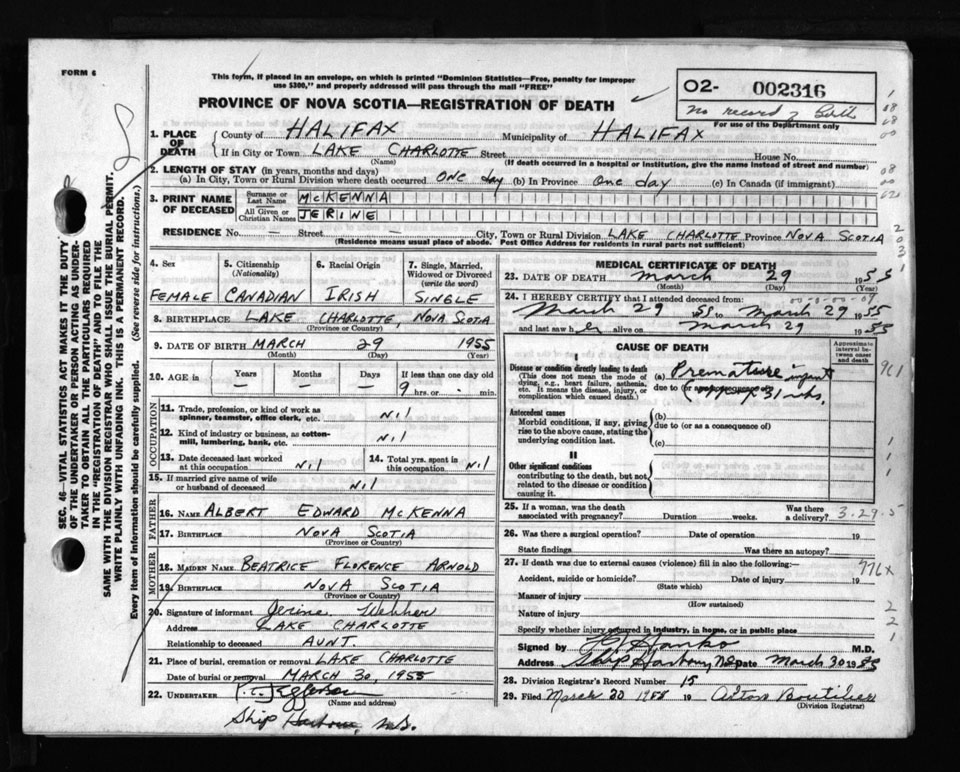 FORM 6
This form, if placed in an envelope, on which is printed "Dominion Statistics—Free, penalty for improper
use $300," and properly addressed will pass through the mail "FREE"
PROVINCE OF NOVA SCOTIA—REGISTRATION OF DEATH
02- 002316
no record of Birth
For use of the Department only
1. PLACE OF DEATH
County of HALIFAX Municipality of HALIFAX
If in City or Town LAKE CHARLOTTE Street House No.
(Name) (If death occurred in a hospital or institution, give the name instead of street and number)
2. LENGTH OF STAY (in years, months and days)
(a) In City, Town or Rural Division where death occurred one day (b) In Province one day (c) In Canada (if immigrant)
3. PRINT NAME OF DECEASED
Surname or Last Name McKENNA
All Given or Christian Names JERINE
RESIDENCE No. — Street — City, Town or Rural Division LAKE CHARLOTTE Province NOVA SCOTIA
(Residence means usual place of abode. Post Office Address for residents in rural parts not sufficient)
4. Sex
FEMALE
5. Citizenship
(Nationality)
CANADIAN
6. Racial Origin
IRISH
7. Single, Married,
Widowed or Divorced
(write the word)
SINGLE
8. BIRTHPLACE LAKE CHARLOTTE, NOVA SCOTIA
(Province or Country)
9. DATE OF BIRTH MARCH 29 1955
(Month) (Day) (Year)
10. AGE in
Years —
Months —
Days —
If less than one day old
9 hrs. or min.
OCCUPATION
11. Trade, profession, or kind of work as
spinner, teamster, office clerk, etc. Nil
12. Kind of industry or business, as cotton-
mill, lumbering, bank, etc. Nil
13. Date deceased last worked
at this occupation Nil
14. Total yrs. spent in
this occupation Nil
15. If married give name of wife
or husband of deceased Nil
FATHER
16. NAME ALBERT EDWARD McKENNA
17. BIRTHPLACE NOVA SCOTIA
(Province or Country)
MOTHER
18. MAIDEN NAME BEATRICE FLORENCE ARNOLD
19. BIRTHPLACE NOVA SCOTIA
(Province or Country)
20. Signature of informant Jerine Webber
Address LAKE CHARLOTTE
Relationship to deceased AUNT.
21. Place of burial, cremation or removal LAKE CHARLOTTE
Date of burial or removal MARCH 30, 1955
22. UNDERTAKER
(Name and address)
Ship Harbour, N.S.
MEDICAL CERTIFICATE OF DEATH
23. DATE OF DEATH March 29 1955
(Month) (Day)
24. I HEREBY CERTIFY that I attended deceased from:
March 29 1955 to March 29 1955
and last saw her alive on March 29 1955
CAUSE OF DEATH
Approximate
interval be-
tween onset
and death
I
Disease or condition directly leading to death
(This does not mean the mode of
dying, e.g., heart failure, asthenia,
etc. It means the disease, injury, or
complication which caused death.)
(a) Premature infant
due to (or as consequence of)
(approx 31 wks.
Antecedent causes
Morbid conditions, if any, giving
rise to the above cause, stating the
underlying condition last.
(b)
due to (or as a consequence of)
(c)
II
Other significant conditions
contributing to the death, but not
related to the disease or condition
causing it.
25. If a woman, was the death
associated with pregnancy? Duration weeks.
Was there
a delivery?
3-29-5
26. Was there a surgical operation? Date of operation 19
State findings Was there an autopsy?
27. If death was due to external causes (violence) fill in also the following:—
776x
Accident, suicide or homicide? Date of injury 19
(State which)
Manner of injury
(How sustained)
Nature of injury
Specify whether injury occurred in industry, in home, or in public place
Signed by M.D.
Address Ship Harbour N.S. Date March 30 1955
28. Division Registrar's Record Number 15
29. Filed March 30 1955 19 Arton Boutilier
(Division Registrar)
SEC. 46—VITAL STATISTICS ACT MAKES IT THE DUTY
OF THE UNDERTAKER OR PERSON ACTING AS UNDER-
TAKER TO OBTAIN ALL THE PARTICULARS REQUIRED
IN THE "REGISTRATION OF DEATH" AND TO FILE THE
SAME WITH THE DIVISION REGISTRAR WHO SHALL ISSUE THE BURIAL PERMIT.
WRITE PLAINLY WITH UNFADING INK. THIS IS A PERMANENT RECORD.
Every item of information should be carefully supplied. (See reverse side for instructions.)